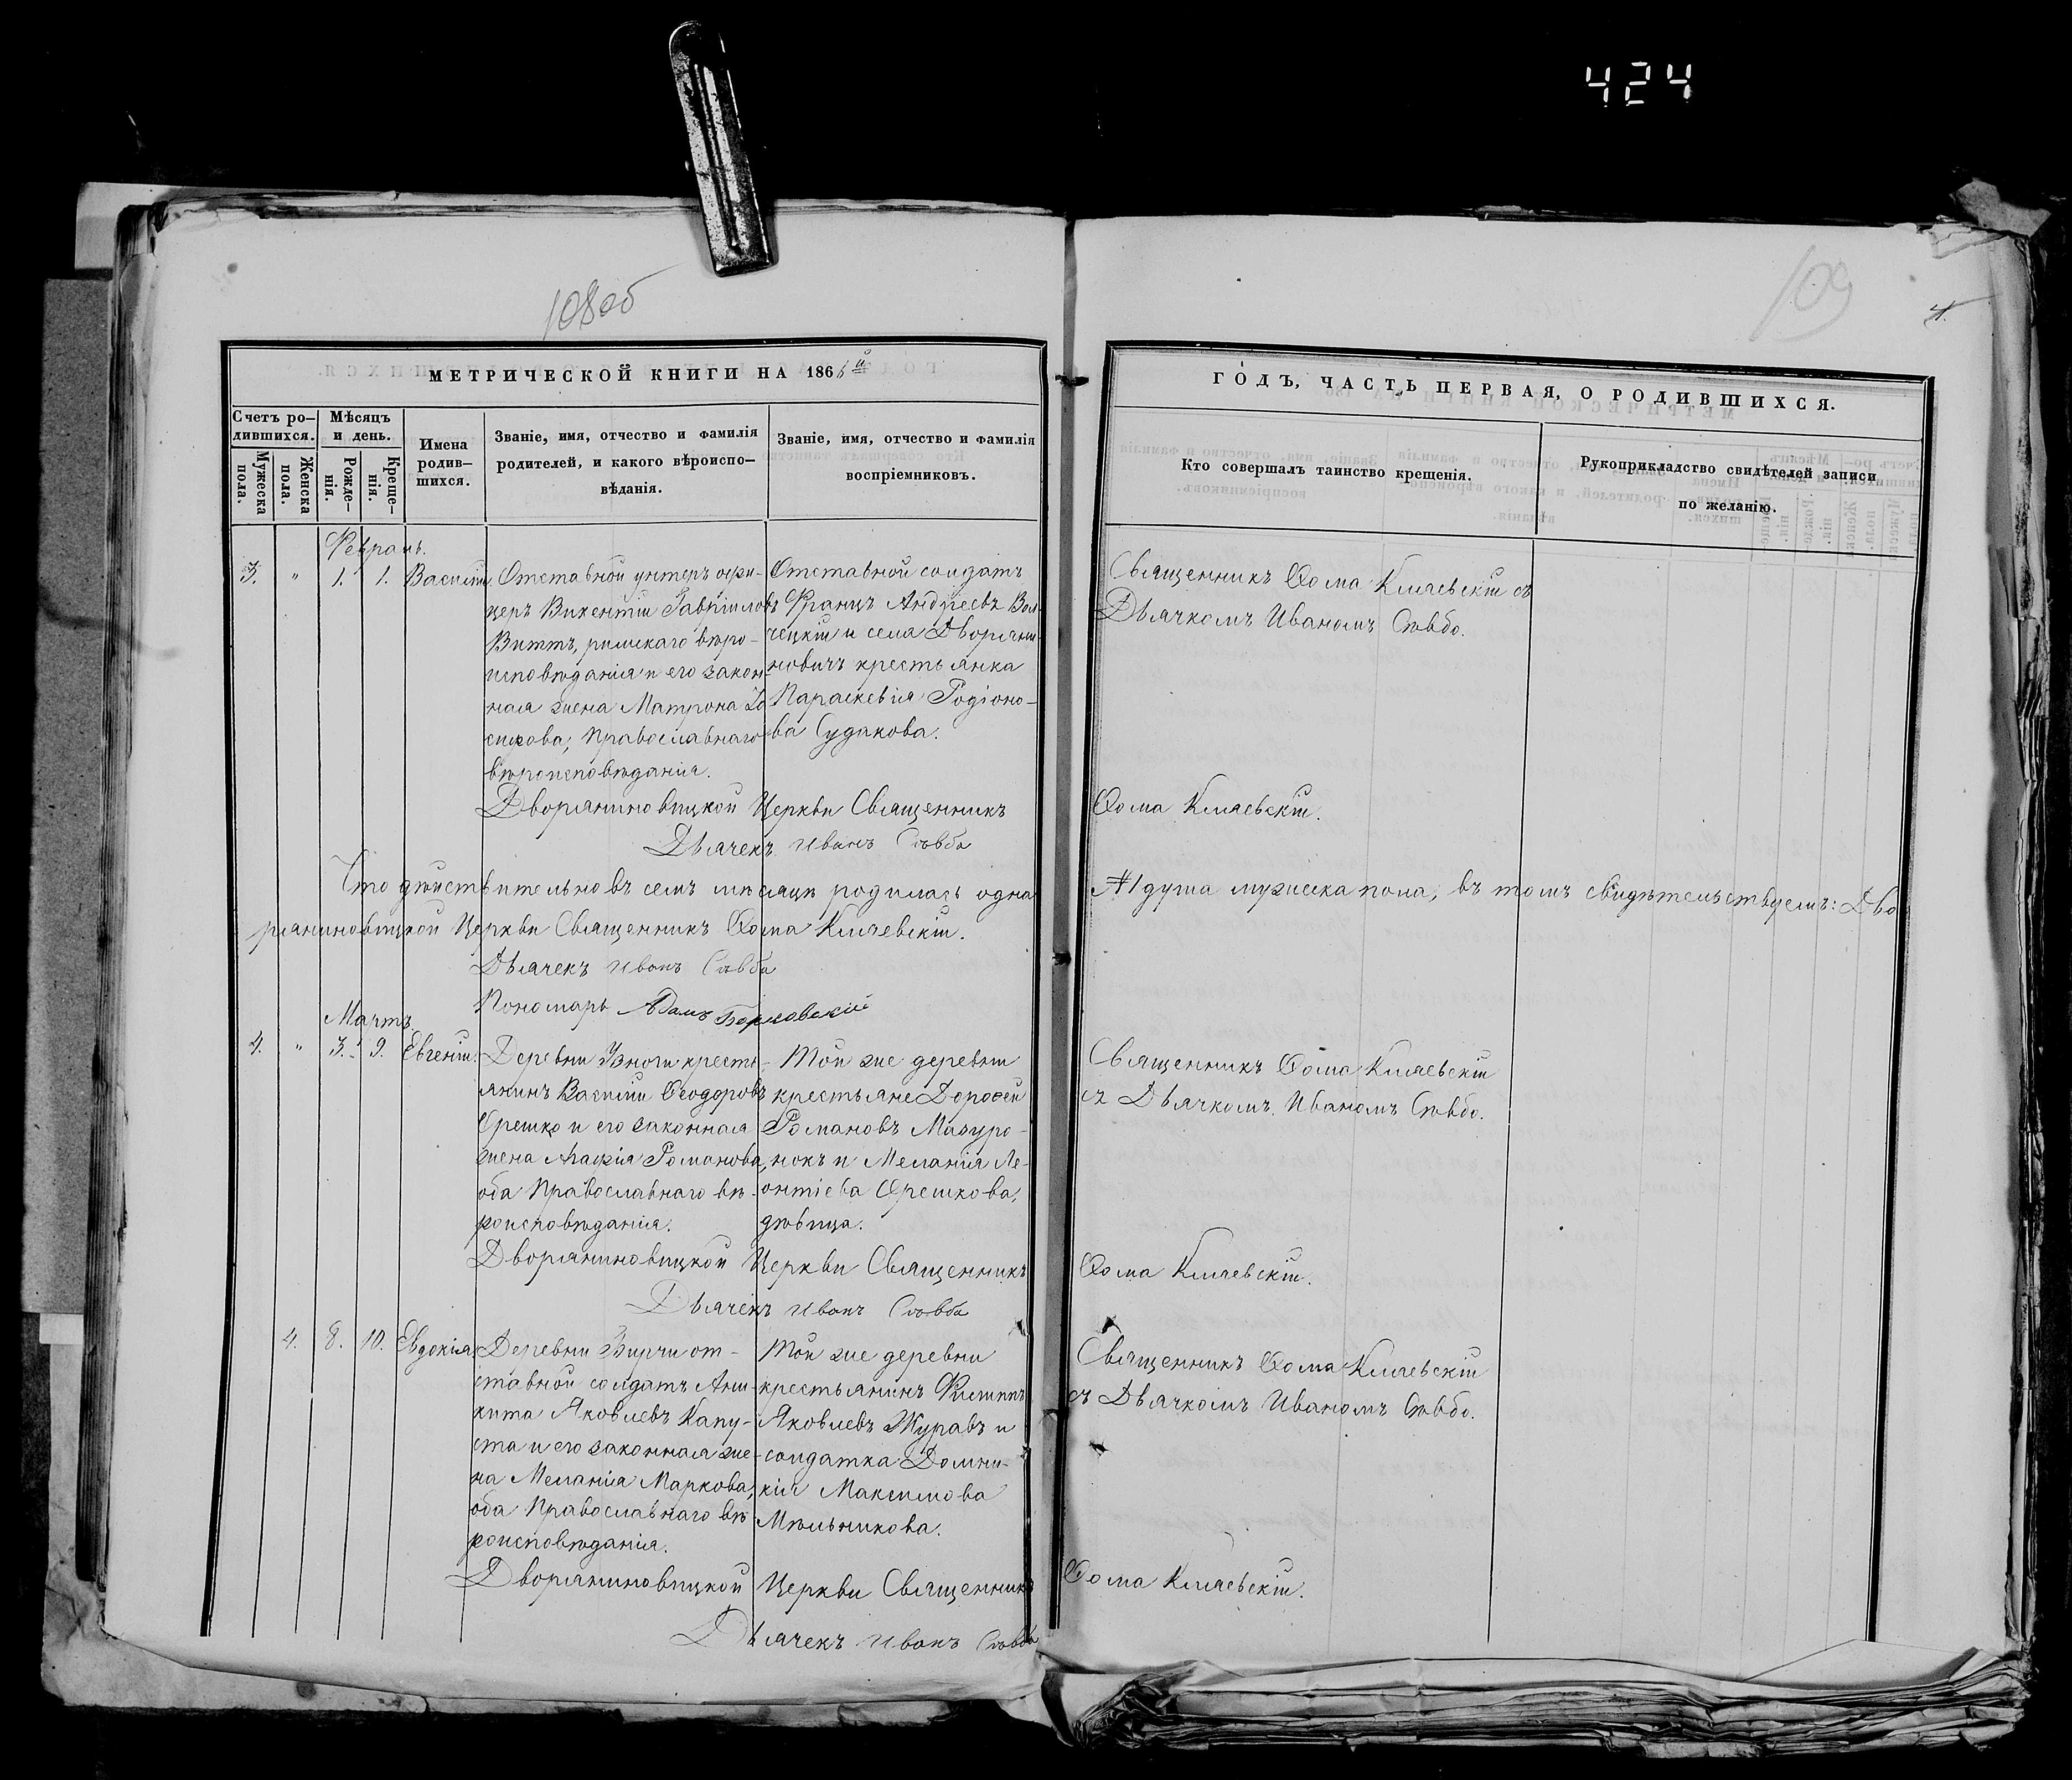 424
108об
109
4.
МЕТРИЧЕСКОЙ КНИГИ НА 1866й
ГОДЪ, ЧАСТЬ ПЕРВАЯ, О РОДИВШИХСЯ.
Счетъ ро-
дившихся.
Мужеска
пола.
Женска
пола.
Мѣсяцъ
и день.
Рожде-
нія.
Креще-
нія.
Имена
родив-
шихся.
Званіе, имя, отчество и фамилія
родителей, и какого вѣроиспо-
вѣданія.
Званіе, имя, отчество и фамилія
воспріемниковъ.
Кто совершалъ таинство крещенія.
Рукоприкладство свидѣтелей записи
по желанію.
Февраль.
3. " 1. 1. Василій
Отставной унтеръ офи-
церъ Викентій Гавріиловъ
Виттъ, римскаго вѣро-
исповѣданія и его закон-
ная жена Матрона
Православнаго
вѣроисповѣданія.
Отставной солдатъ
Францъ Андреевъ Вол-
чецкій и села Дворяни-
новичъ крестьянка
Параскевія Родіоно-
ва Судакова.
Священникъ Ѳома Кличевскій съ
Дьячкомъ Иваномъ
Дворяниновицкой Церкви Священникъ Ѳома Кличевскій.
Дьячекъ Иванъ
Что дѣйствительно въ семъ мѣсяцѣ родилась одна #1 душа мужеска пола, въ томъ свидѣтельствуемъ: Дво
ряниновицкой Церкви Священникъ Ѳома Кличевскій.
Дьячекъ Иванъ
Пономарь Адамъ
Мартъ.
4. " 3. 9. Евгеній.
Деревни Зноги кресть-
янинъ Василій Ѳеодоровъ
Орешко и его законная
жена Агафія Романова,
оба Православнаго вѣ-
роисповѣданія.
Той же деревни
крестьяне Дороѳей
Романовъ Мазуро-
нокъ и Меланія Ле-
онтіева Орешкова,
дѣвица.
Священникъ Ѳома Кличевскій
съ Дьячкомъ Иваномъ
Дворяниновицкой Церкви Священникъ Ѳома Кличевскій.
Дьячекъ Иванъ
4. 8. 10. Евдокія.
Деревни Вирчи от-
ставной солдатъ Ани-
кита Яковлевъ Капу-
ста и его законная же-
на Меланія Маркова,
оба Православнаго вѣ
роисповѣданія.
Той же деревни
крестьянинъ Филиппъ
Яковлевъ Журавъ и
солдатка Домни-
кія Максимова
Мѣльникова.
Священникъ Ѳома Кличевскій
съ Дьячкомъ Иваномъ
Дворяниновицкой Церкви Священникъ Ѳома Кличевскій.
Дьячекъ Иванъ